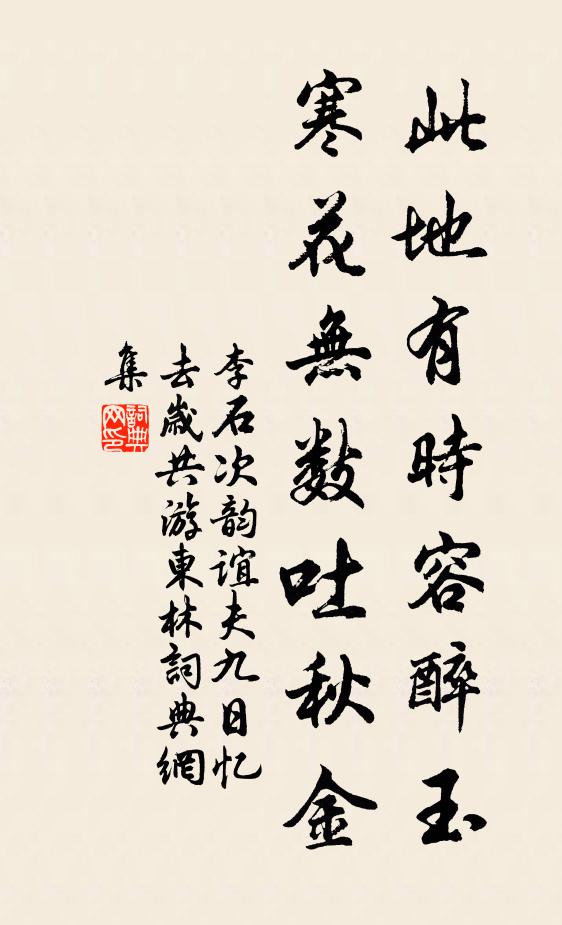 此地有時容醉玉
寒花無數吐秋金
李石次韵誼夫九日忆
去歲共游東林詞典網
集
詞典网印